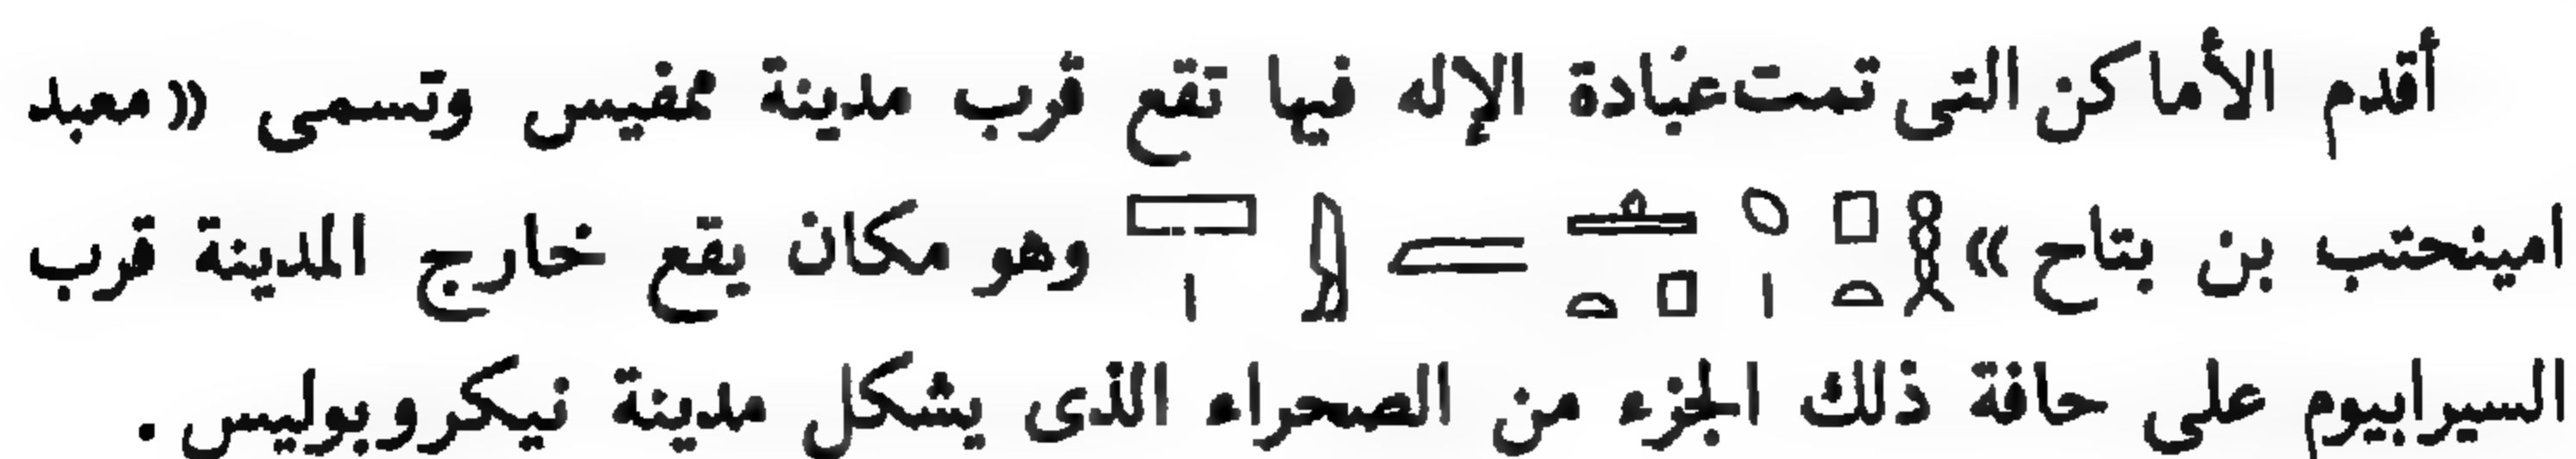 أقدم الأماكن التى تمت عبادة الإله فيها تقع قرب مدينة ممفيس وتسمى «معبد
امينحتب بن بتاح» وهو مكان يقع خارج المدينة قرب
السيرابيوم على حافة ذلك الجزء من الصحراء الذى يشكل مدينة نيكروبوليس .